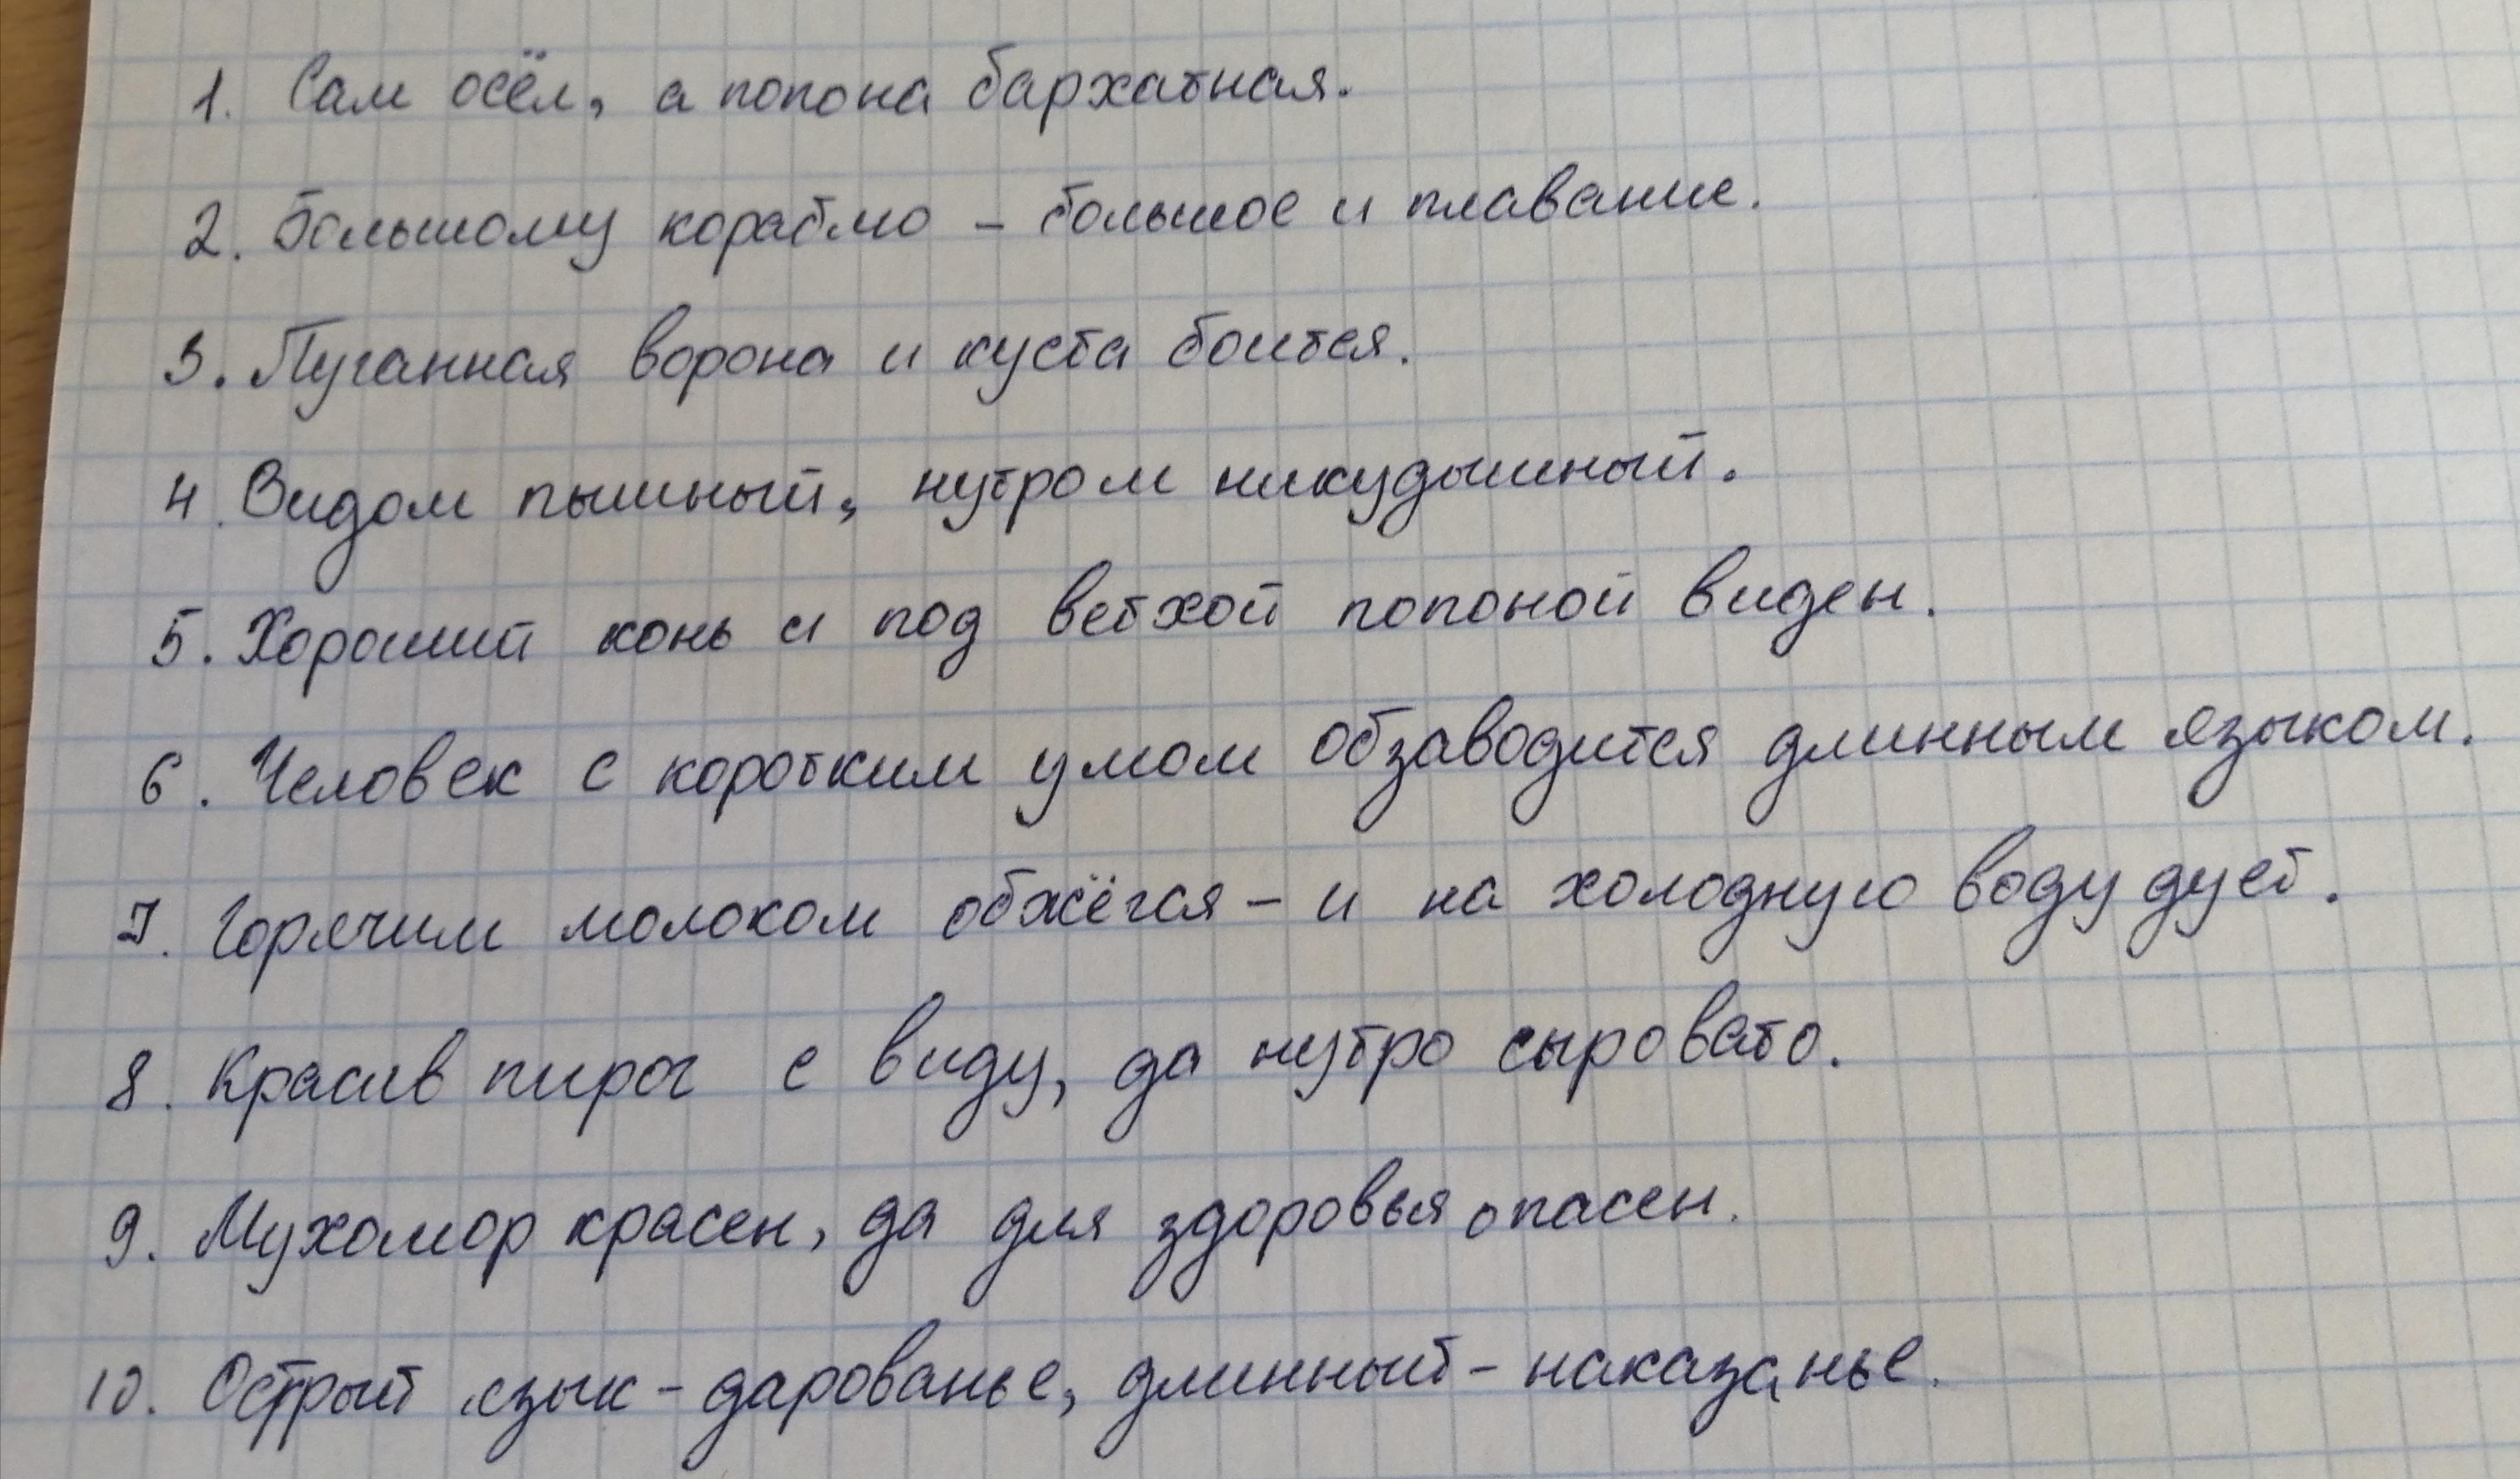 1. Сам осёл, а попона бархатная.
2. Большому кораблю - большое и плавание.
3. Пуганная ворона и куста боится.
4. Видом пышный, нутром никудышный.
5. Хороший конь и под ветхой попоной виден.
6. Человек с коротким умом обзаводится длинным языком.
7. Горячим молоком обжёгся - и на холодную воду дует.
8. Красив пирог с виду, да нутро сыровато.
9. Мухомор красен, да для здоровья опасен.
10. Острый язык - дарованье, длинный - наказанье.